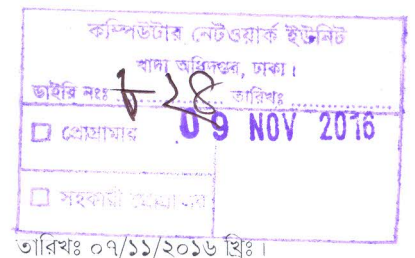 কম্পিউটার নেটওয়ার্ক ইউনিট
খাদ্য অধিদপ্তর, ঢাকা।
ডাইরি নংঃ ৮২৪ তারিখঃ ..............
09 NOV 2016
☐ প্রোগ্রামার
☐ সহকারী প্রোগ্রামার
তারিখঃ ০৭/১১/২০১৬ খ্রিঃ।